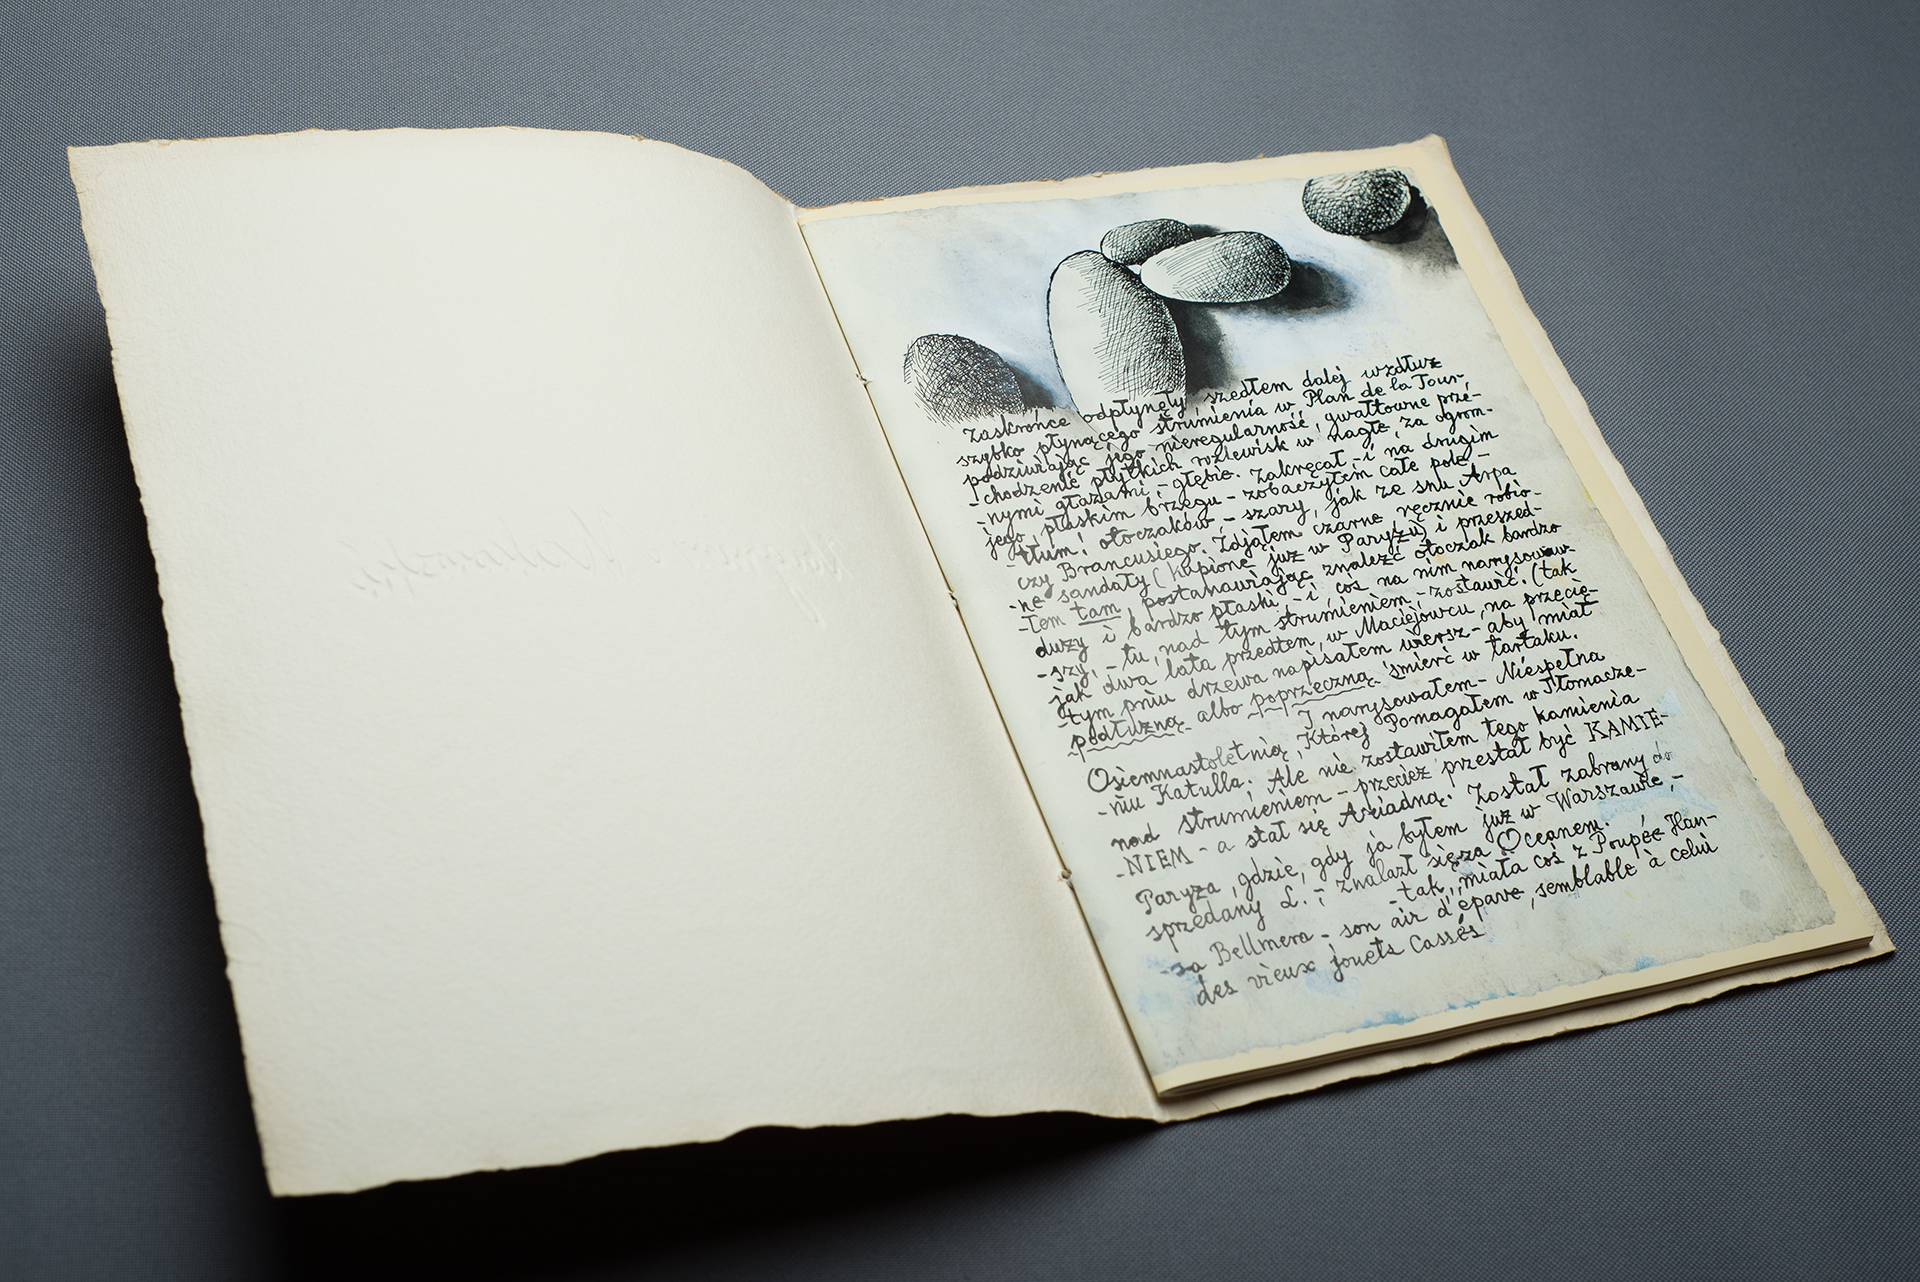 zaskrońce odpłynęły, szedłem dalej wzdłuż
szybko płynącego strumienia w Plan de la Tour-
podziwiając jego nieregularność, gwałtowne prze-
-chodzenie płytkich rozlewisk w nagłe, za ogrom-
-nymi głazami, - głębie. Zakręcał - i na drugim
jego, płaskim brzegu - zobaczyłem całe pole -
-tłum! otoczaków - szary, jak ze snu Arpa
czy Brancusiego. Zdjąłem czarne ręcznie robio-
-ne sandały (kupione już w Paryżu) i przeszed-
-łem tam, postanawiając znaleźć otoczak bardzo
duży i bardzo płaski, - i coś na nim narysowaw-
-szy, - tu, nad tym strumieniem - zostawić. (tak
jak dwa lata przedtem, w Maciejowcu, na przecię-
tym pniu drzewa napisałem wiersz - aby miał
podłużną albo poprzeczną śmierć w tartaku.
I narysowałem - Niespełna
Osiemnastoletnią, której Pomagałem w Tłomacze-
-niu Katulla; Ale nie zostawiłem tego kamienia
nad strumieniem - przecież przestał być KAMIE-
-NIEM - a stał się Ariadną. Został zabrany do
Paryża, gdzie, gdy ja byłem już w Warszawie, -
sprzedany L. - znalazł się za Oceanem.
- tak, miała coś z Poupée Han-
-sa Bellmera - son air d'épave, semblable à celui
des vieux jouets cassés